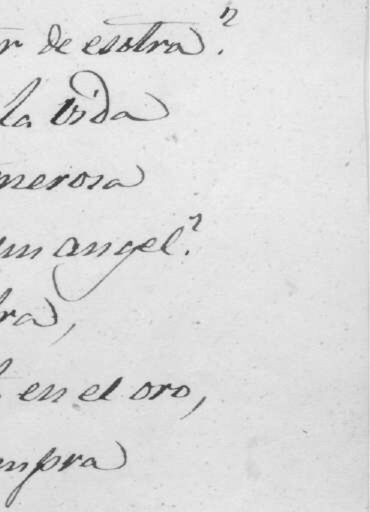 r de esotra?
la vida
nerosa
un angel?
ra,
en el oro,
mpra